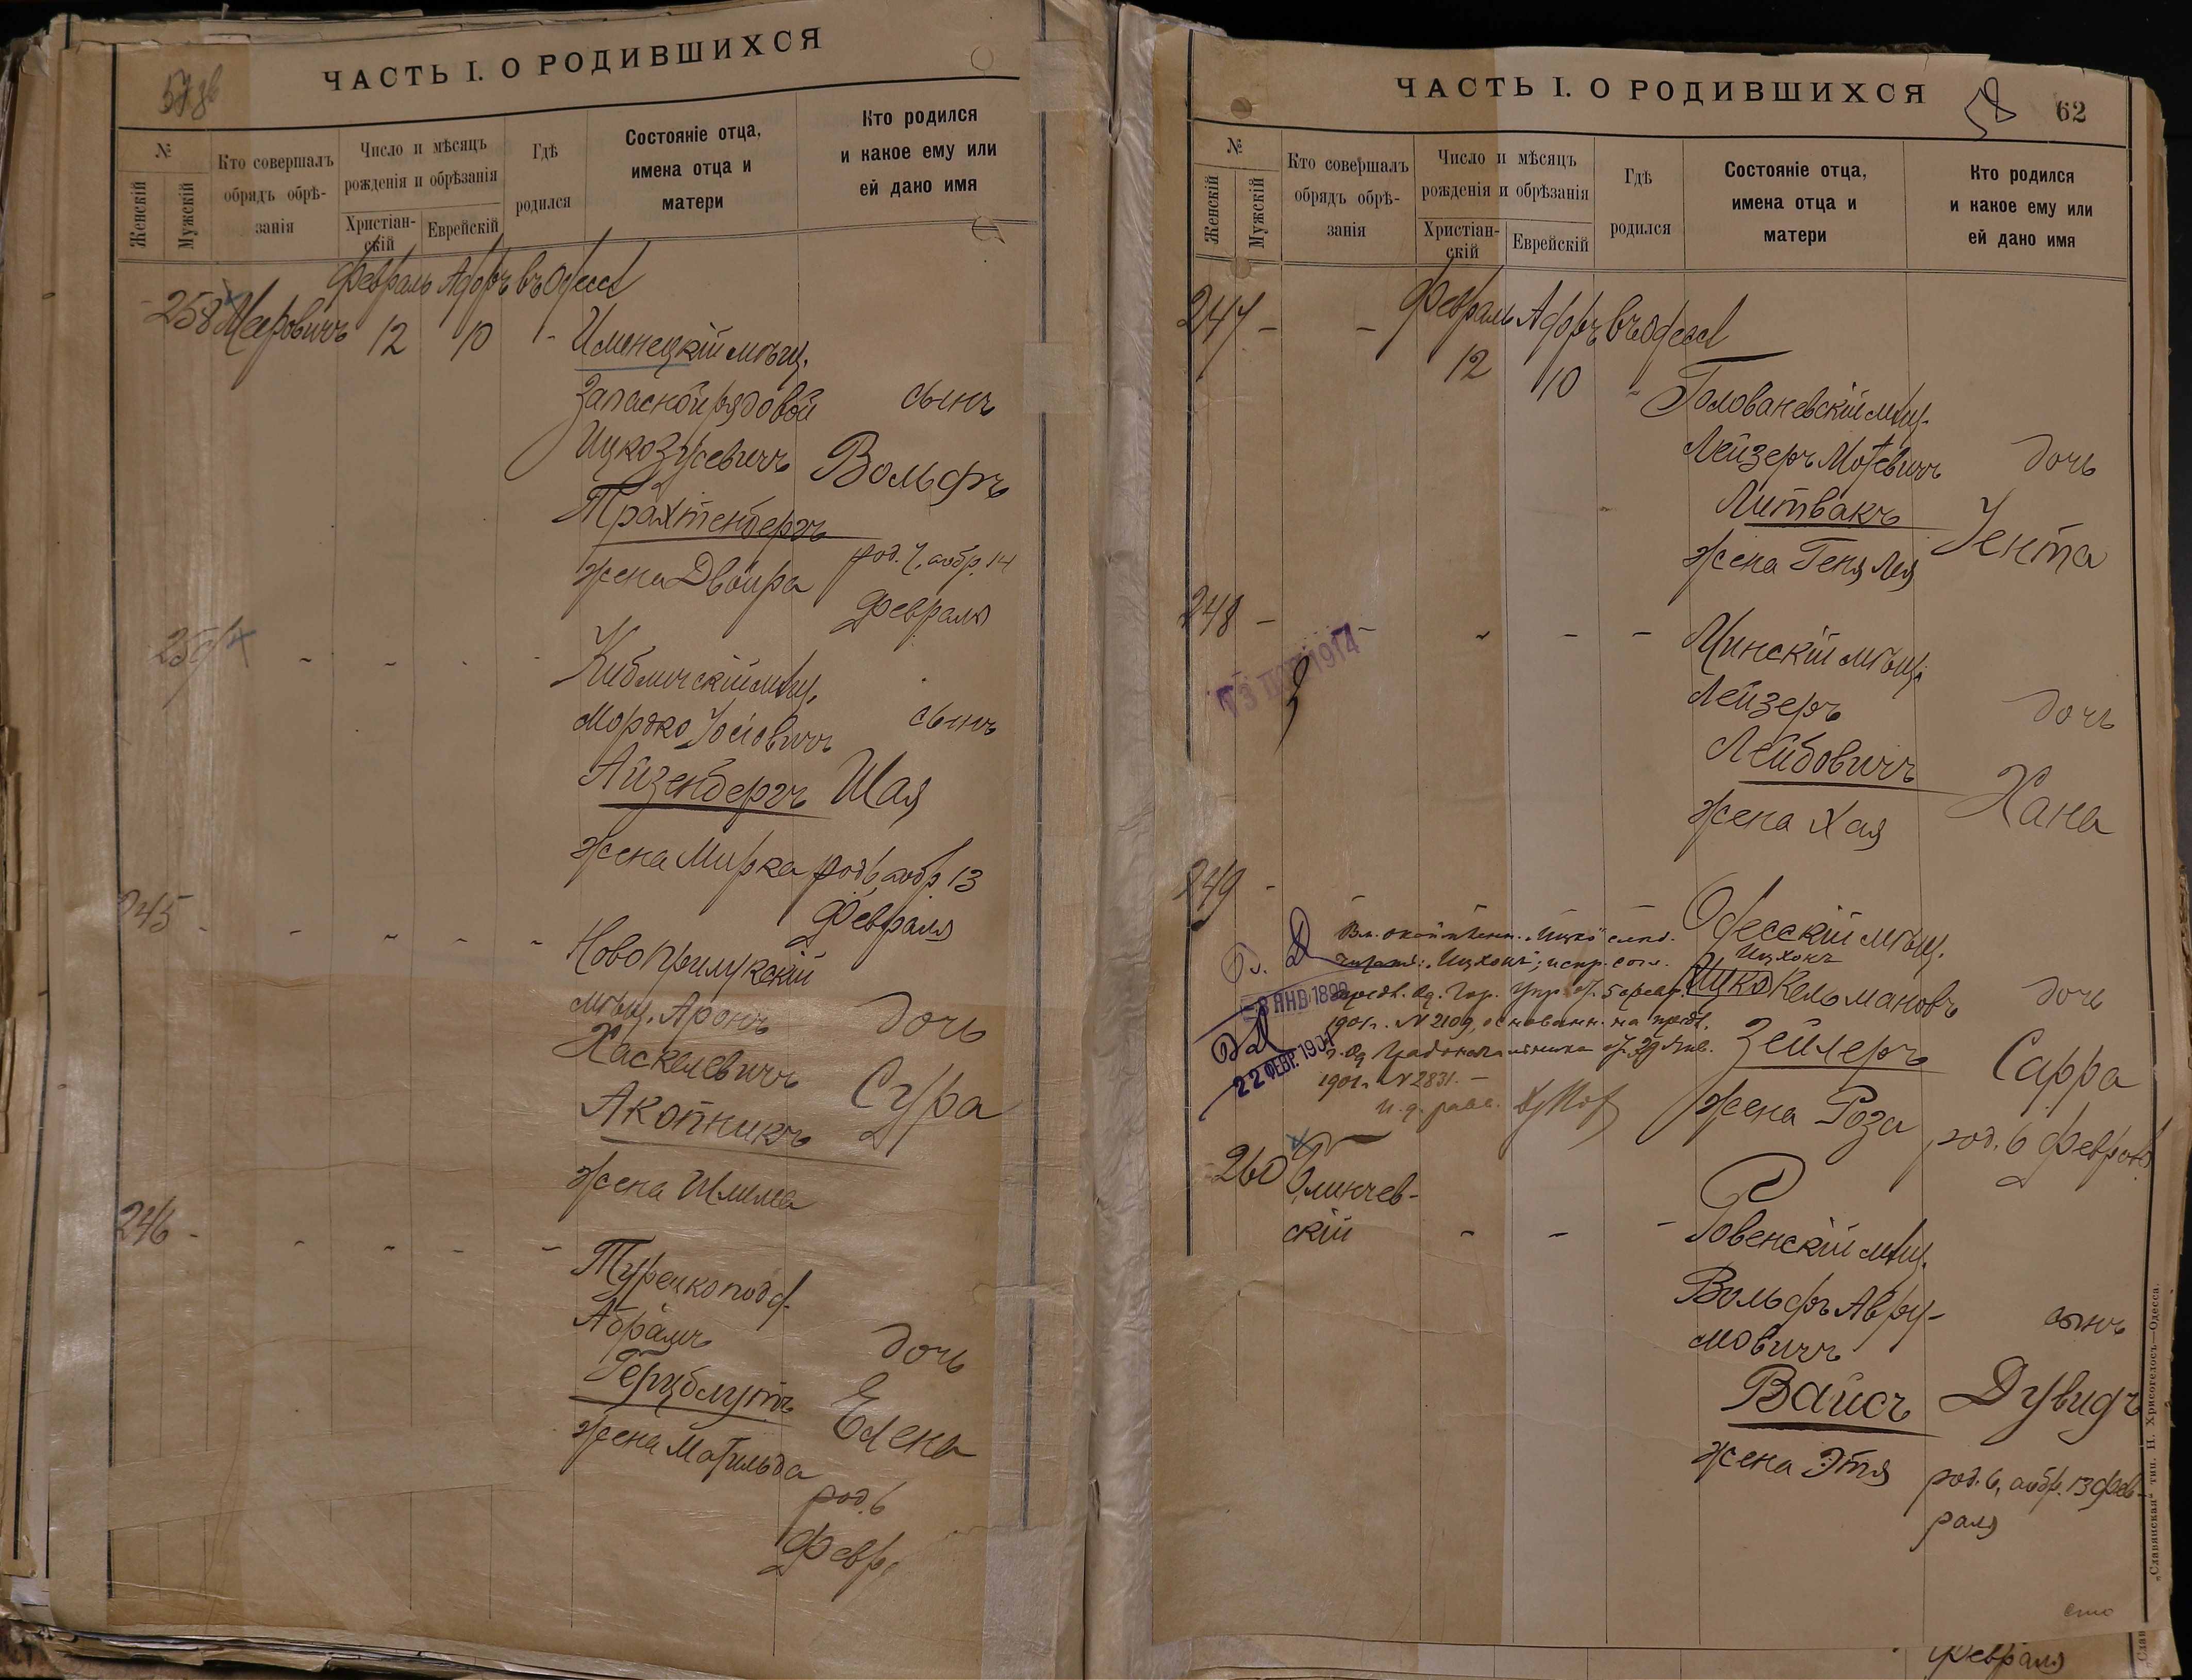 57 об
ЧАСТЬ I. О РОДИВШИХСЯ
№
Женскій
Мужскій
Кто совершалъ
обрядъ обрѣ-
занія
Число и мѣсяцъ
рожденія и обрѣзанія
Христіан-
скій
Еврейскій
Гдѣ
родился
Состояніе отца,
имена отца и
матери
Кто родился
и какое ему или
ей дано имя
Февраль Адаръ въ Одессѣ
258 Мееровичъ 12 10 -
мѣщ.
запасной рядовой
Ицко Зусевичъ
Трахтенбергъ
жена Двойра
сынъ
Вольфъ
род. 7, аобр. 14
Февраля
259 - - - -
Кибличскій мѣщ.
Мордко Іосіовичъ
Айзенбергъ
жена Мирка
сынъ
Шая
род 6, аобр 13
Февраля
245 - - - - -
Новоприлукскій
мѣщ. Аронъ
Хаскелевичъ
Акопникъ
жена Шлима
дочь
Сура
246 - - - - -
Турецкоподд.
Абрамъ
Герцблутъ
жена Матильда
дочь
Елена
род. 6
Февр.
ЧАСТЬ I. О РОДИВШИХСЯ
58
62
№
Женскій
Мужскій
Кто совершалъ
обрядъ обрѣ-
занія
Число и мѣсяцъ
рожденія и обрѣзанія
Христіан-
скій
Еврейскій
Гдѣ
родился
Состояніе отца,
имена отца и
матери
Кто родился
и какое ему или
ей дано имя
Февраль Адаръ въ Одессѣ
247 - - 12 10 -
Голованевскій мѣщ.
Лейзеръ Мотевичъ
Литвакъ
жена Геня Лея
дочь
Іента
248 - - - - -
1914
Минскій мѣщ.
Лейзеръ
Лейбовичъ
жена Хая
дочь
Хана
249 -
Одесскій мѣщ.
Ицхокъ
Ицко Кельмановъ
Зейлеръ
жена Роза
дочь
Сарра
род. 6 Февраля
„Ицко“ слѣд.
читать: „Ицхокъ“; испр. согл.
предп. Од. Гор. Упр. от 5 февр.
1901 г. № 2109, основанн. на предп.
г. Од. Градоначальника от 29 Янв.
1901 г. № 2831. -
ЯНВ 189
22 ФЕВР. 1901
260 Блинчев-
скій - - -
Ровенскій мѣщ.
Вольфъ Авру-
мовичъ
Вайсъ
жена Этя
сынъ
Дувидъ
род. 6, аобр. 13 Фев-
раля
„Славянская“ тип. Н. Хрисогелосъ.—Одесса.
Февраля